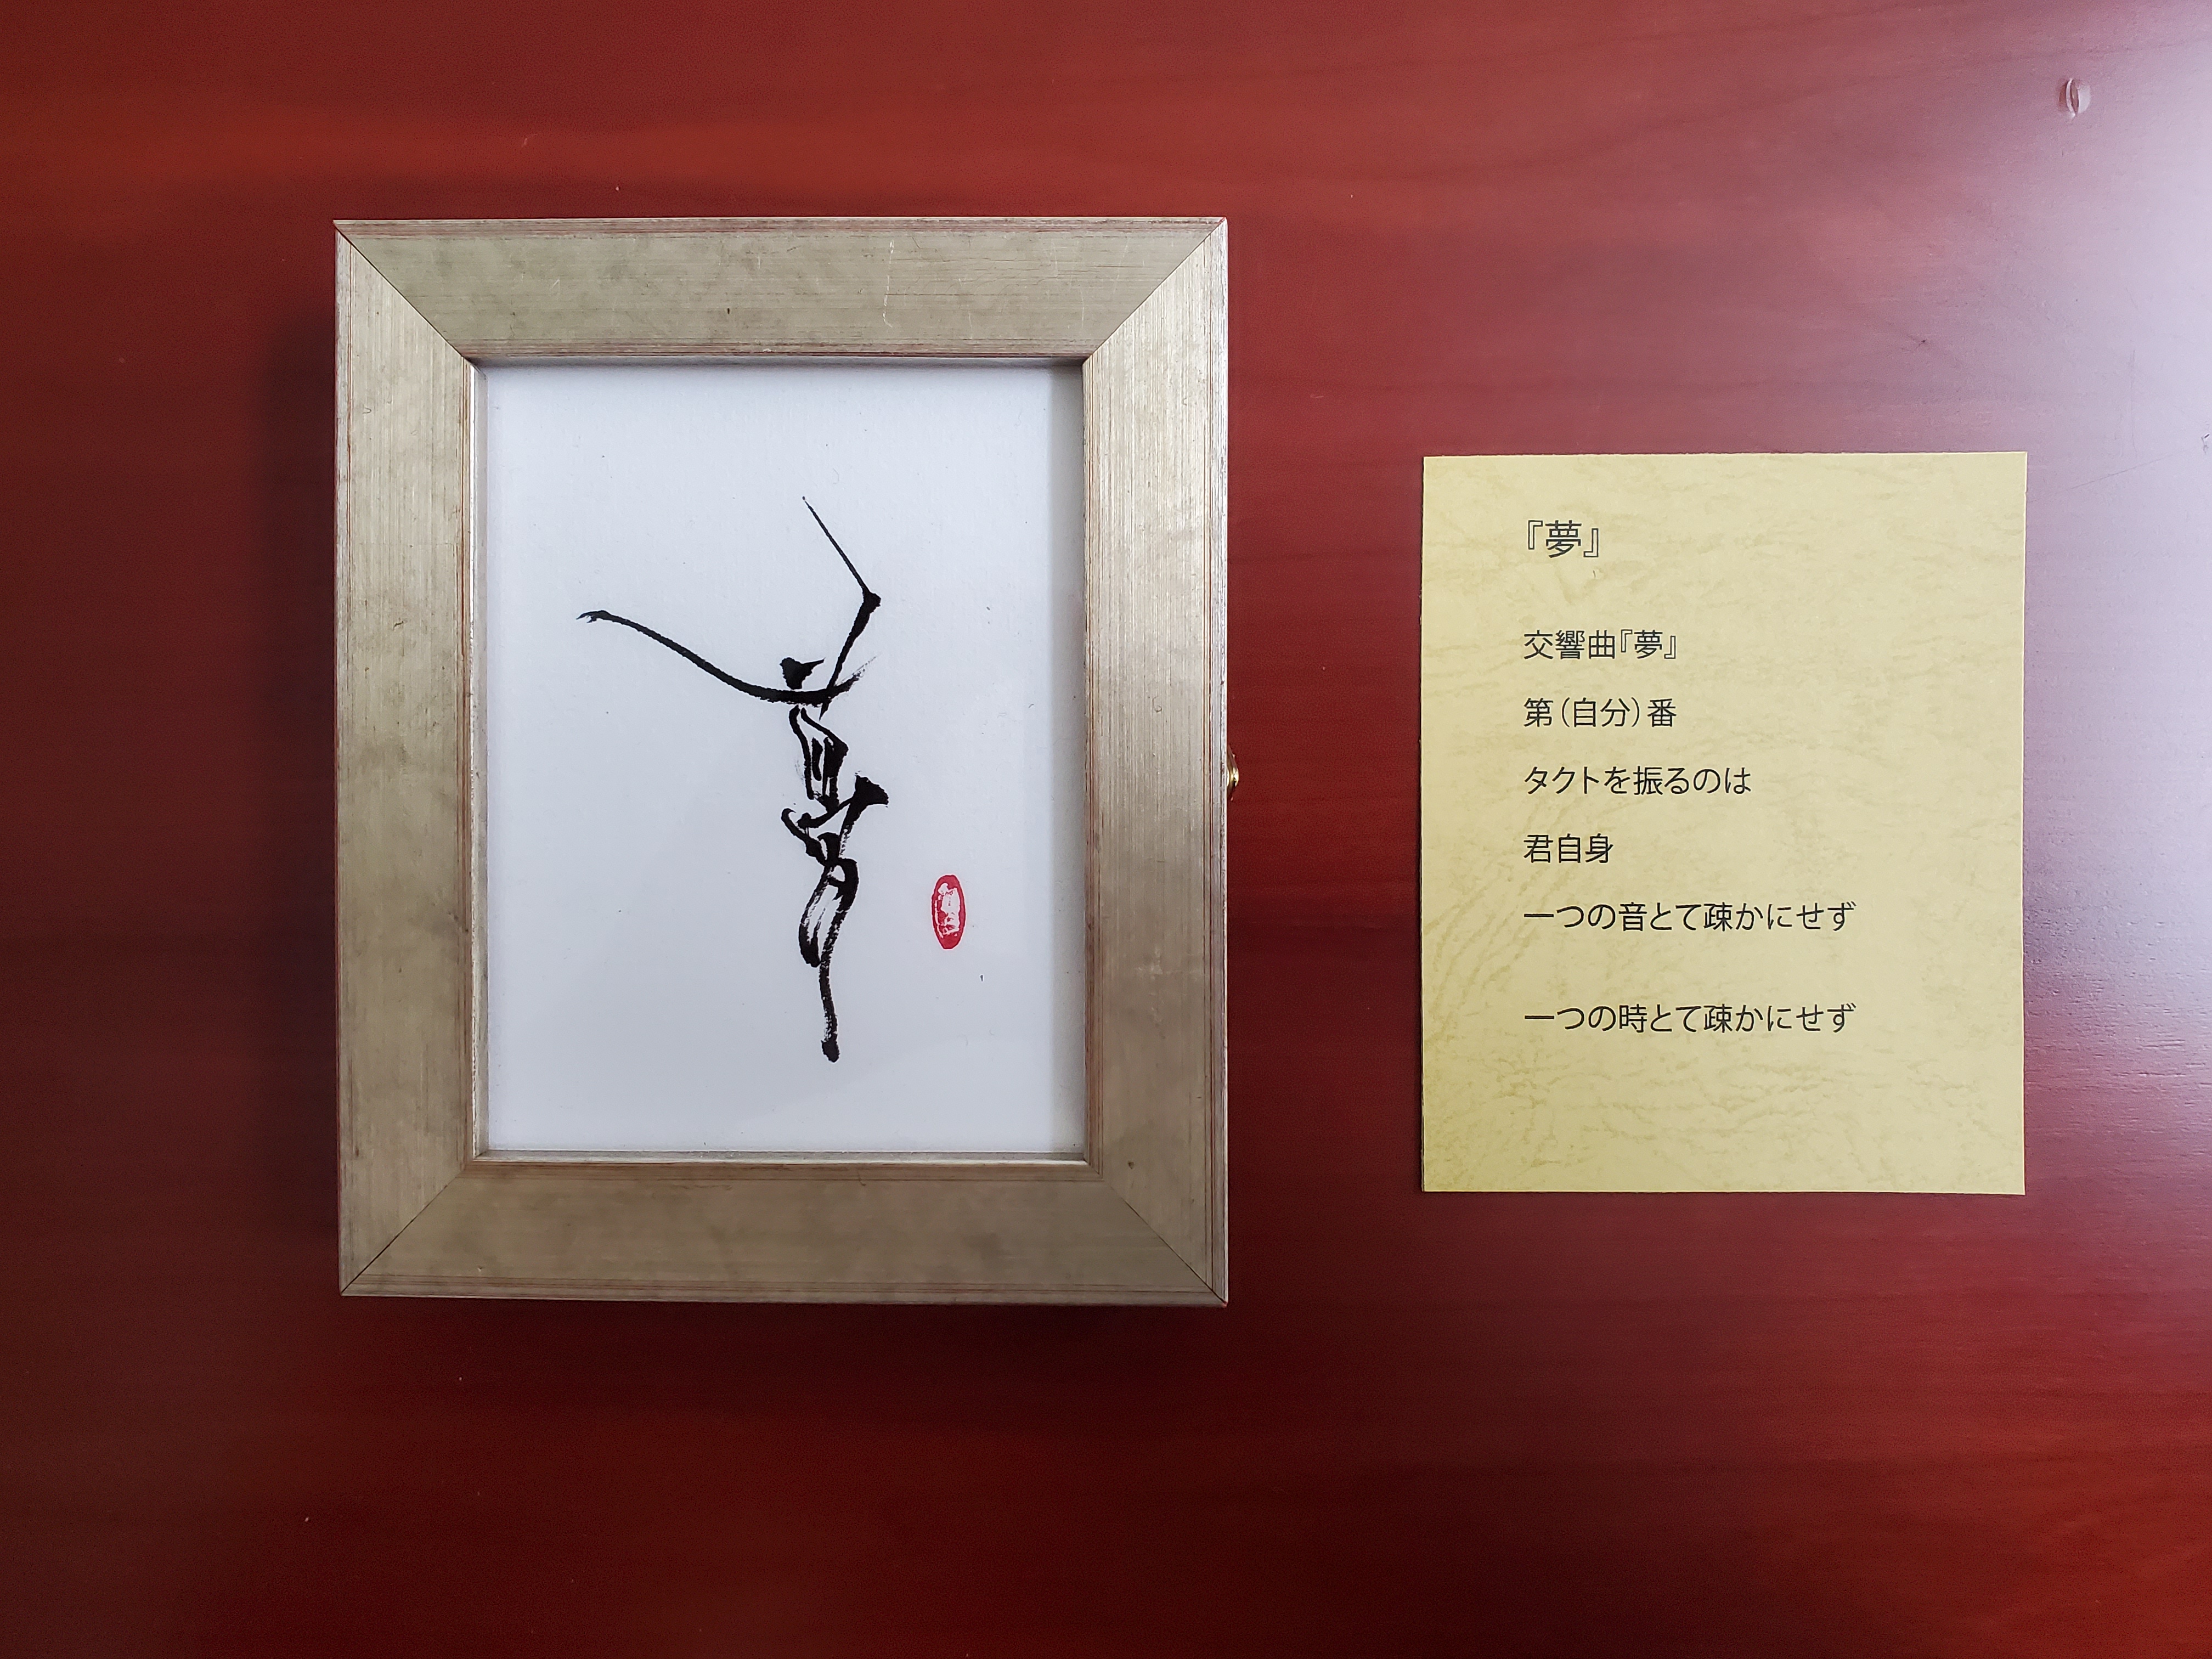 『夢』
交響曲『夢』
第(自分)番
タクトを振るのは
君自身
一つの音とて疎かにせず
一つの時とて疎かにせず